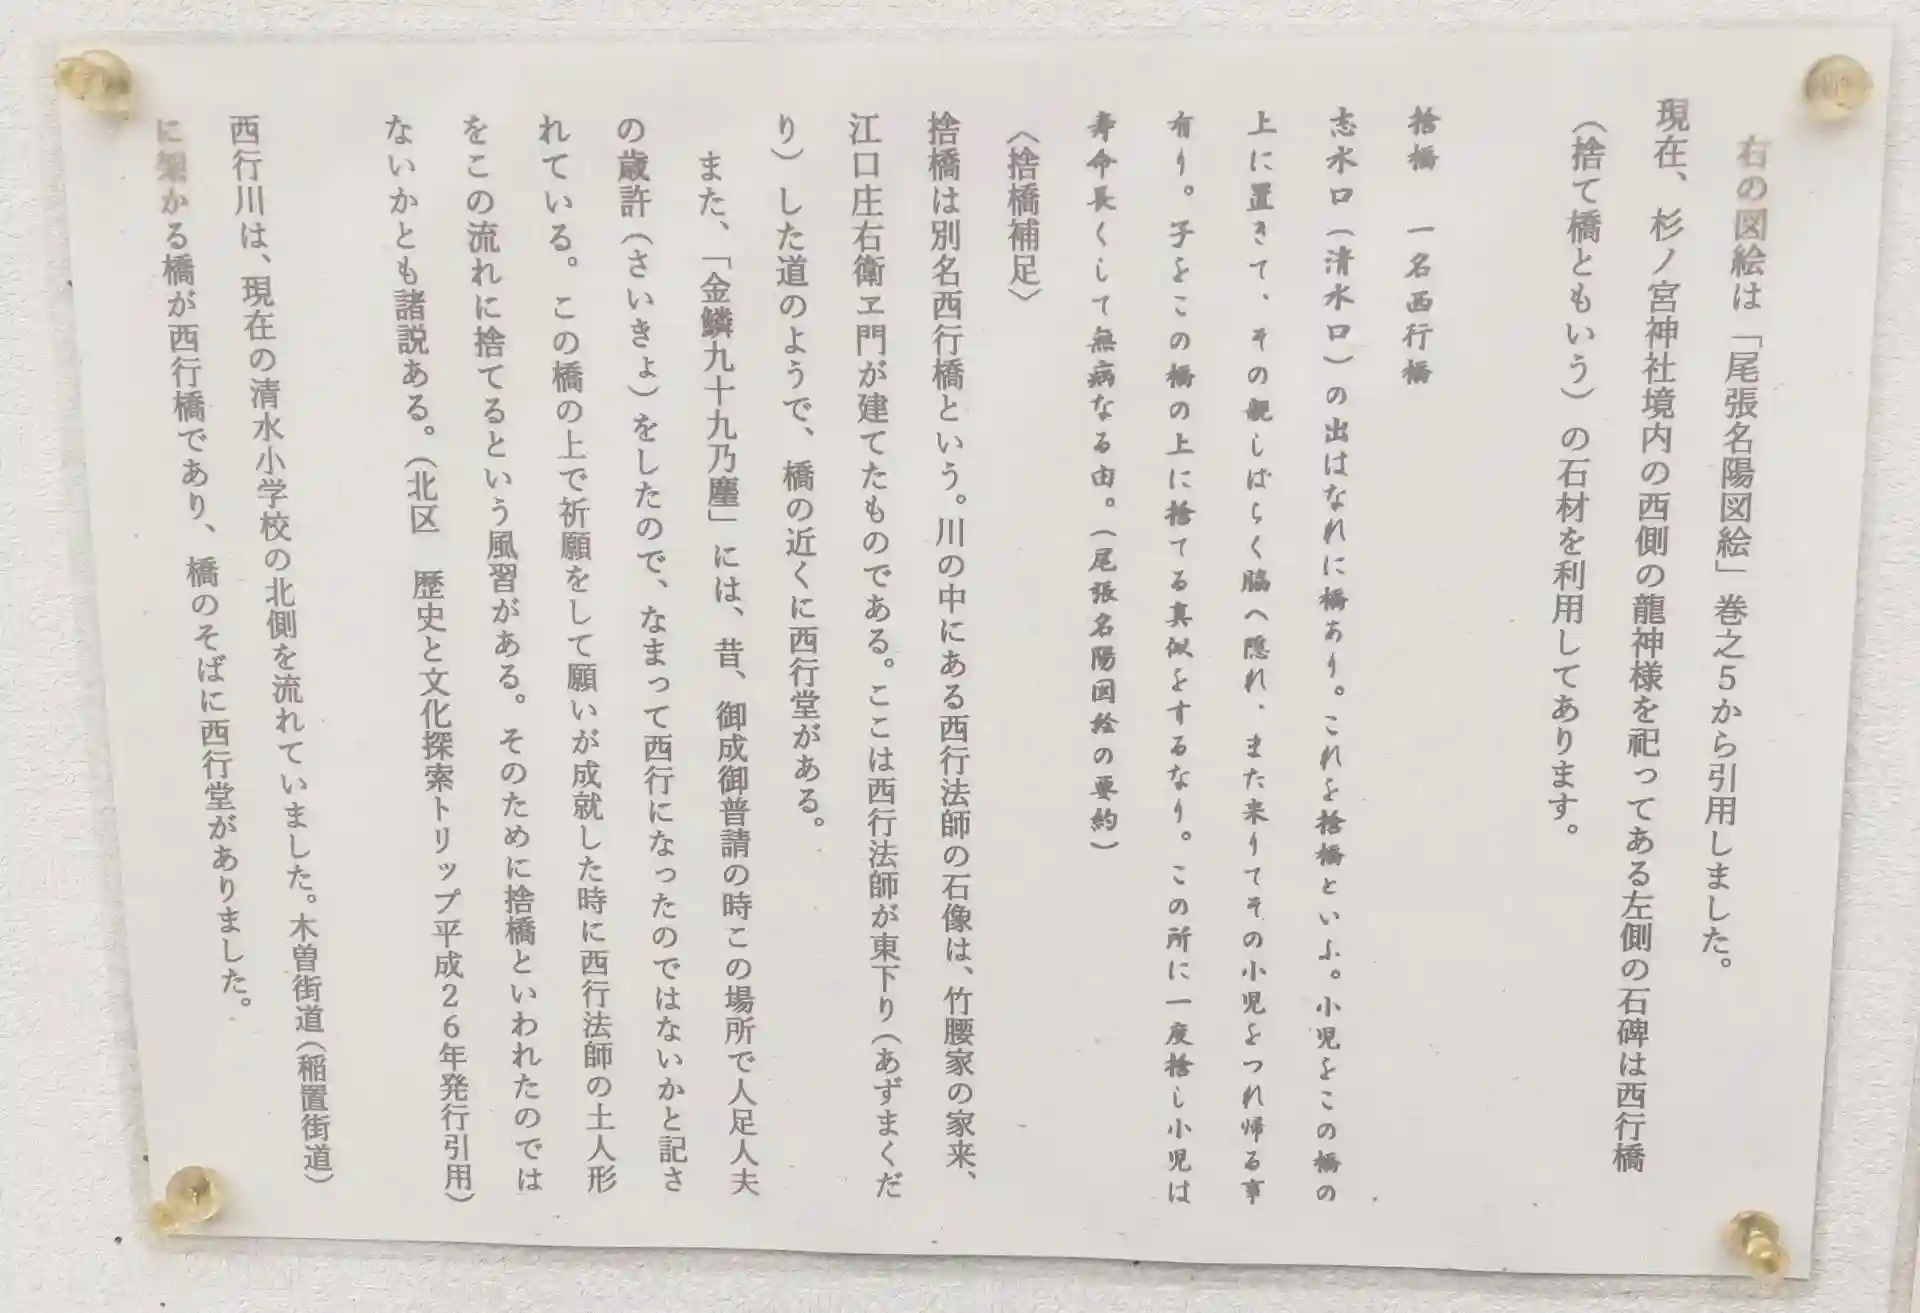 右の図絵は「尾張名陽図絵」巻之5から引用しました。
現在、杉ノ宮神社境内の西側の龍神様を祀ってある左側の石碑は西行橋
（捨て橋ともいう）の石材を利用してあります。
捨橋　一名西行橋
志水口（清水口）の出はなれに橋あり。これを捨橋といふ。小児をこの橋の
上に置きて、その親しばらく脇へ隠れ、また来りてその小児をつれ帰る事
有り。子をこの橋の上に捨てる真似をするなり。この所に一度捨し小児は
寿命長くして無病なる由。（尾張名陽図絵の要約）
〈捨橋補足〉
捨橋は別名西行橋という。川の中にある西行法師の石像は、竹腰家の家来、
江口庄右衛ヱ門が建てたものである。ここは西行法師が東下り（あずまくだ
り）した道のようで、橋の近くに西行堂がある。
また、「金鱗九十九乃塵」には、昔、御成御普請の時この場所で人足人夫
の歳許（さいきょ）をしたので、なまって西行になったのではないかと記さ
れている。この橋の上で祈願をして願いが成就した時に西行法師の土人形
をこの流れに捨てるという風習がある。そのために捨橋といわれたのでは
ないかとも諸説ある。（北区　歴史と文化探索トリップ平成26年発行引用）
西行川は、現在の清水小学校の北側を流れていました。木曽街道（稲置街道）
に架かる橋が西行橋であり、橋のそばに西行堂がありました。